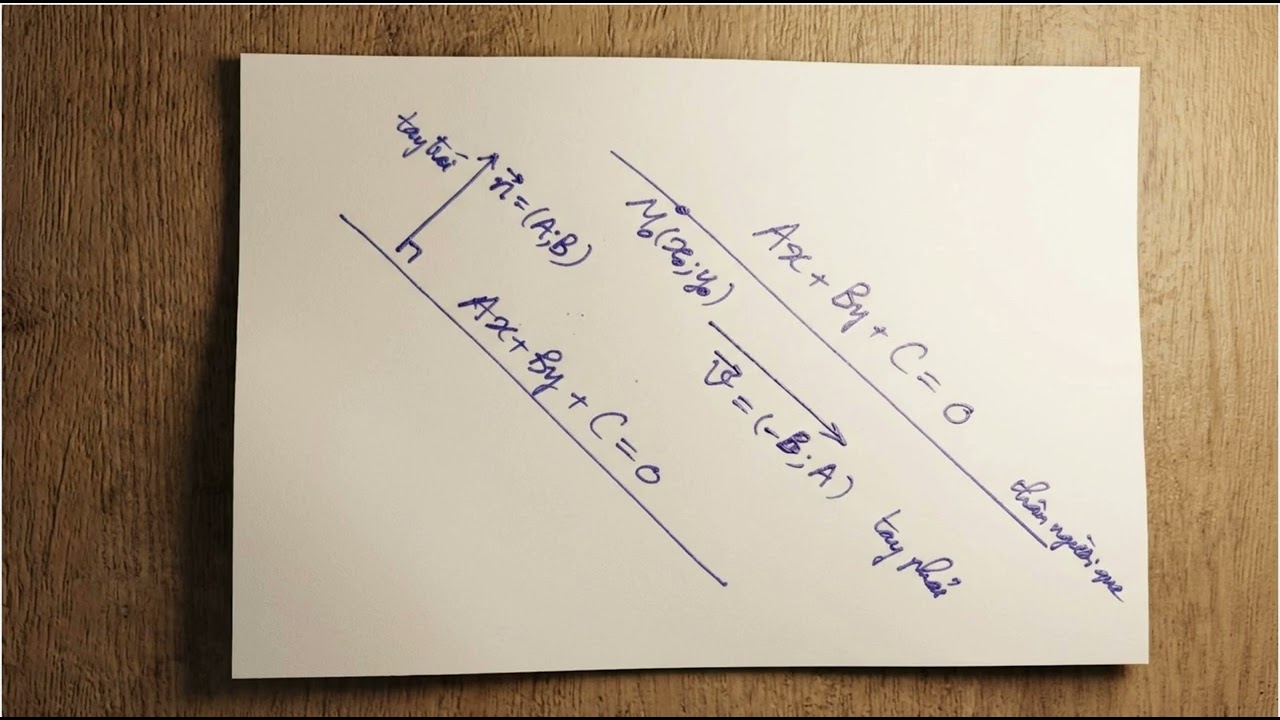 tay trái
n⃗ = (A;B)
Ax + By + C = 0
M₀(x₀;y₀)
Ax + By + C = 0
v⃗ = (-B;A)
tay phải
thân người que